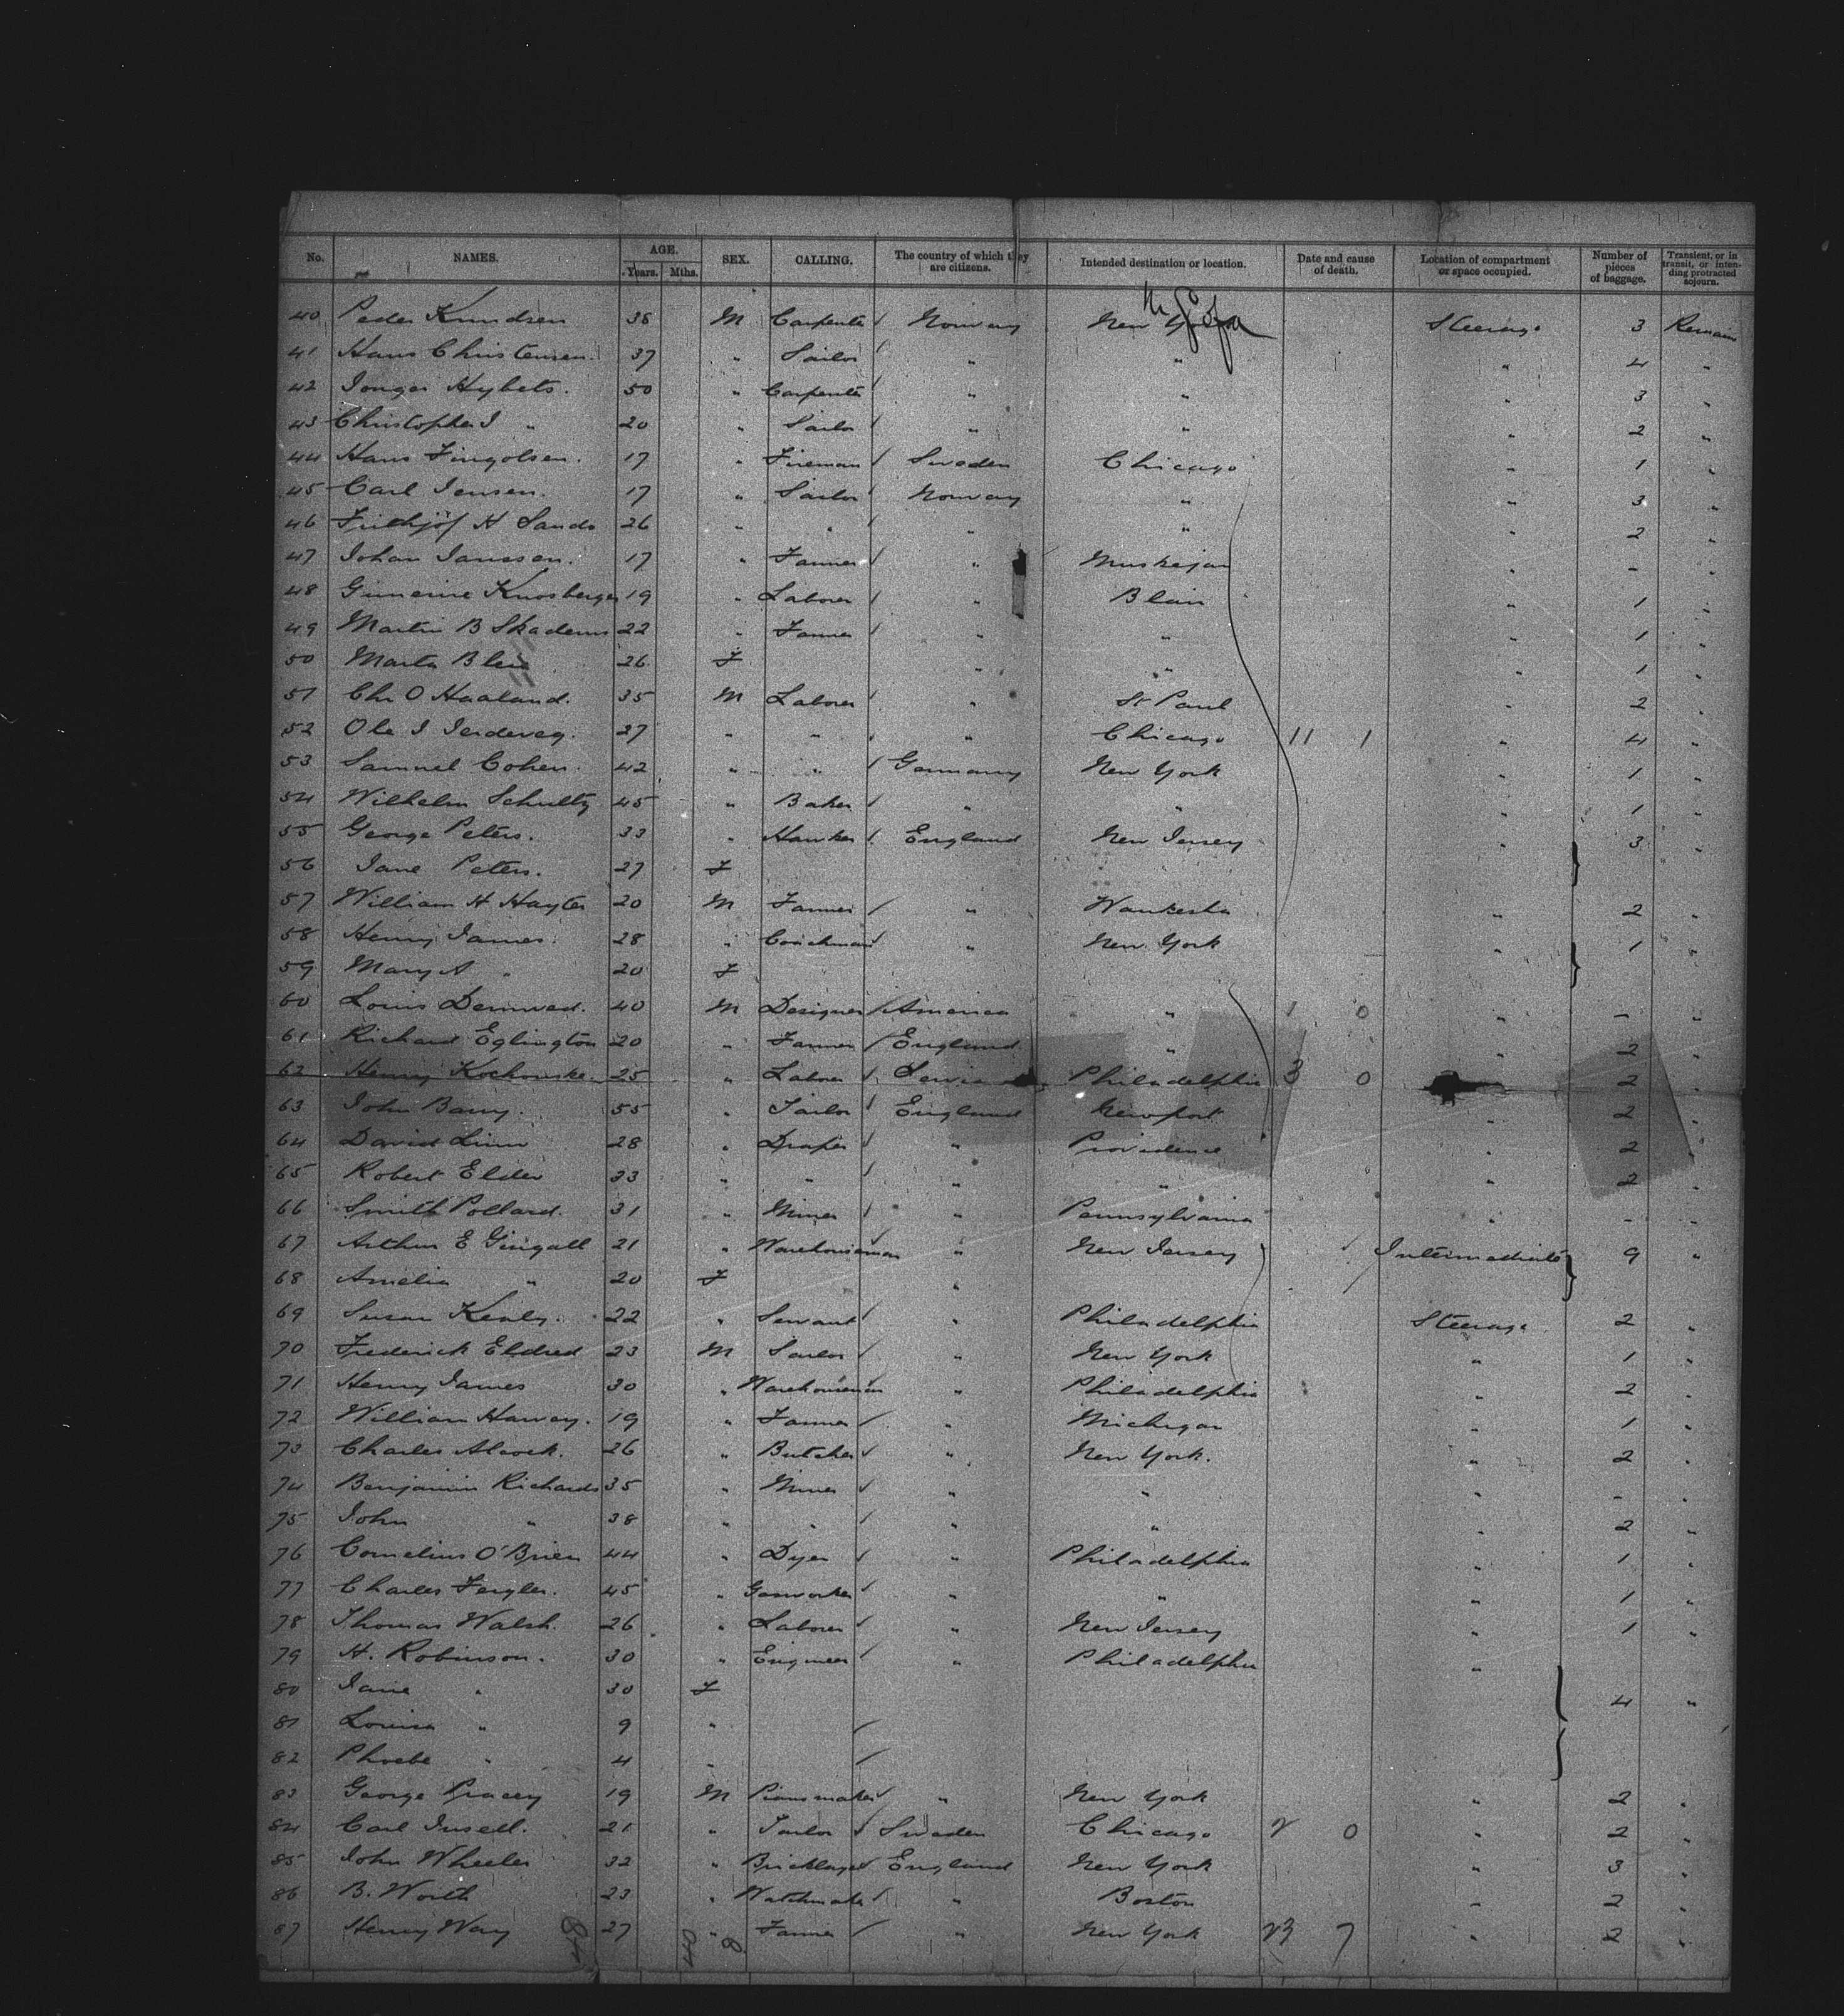 No. NAMES. AGE. Years. Mths. SEX. CALLING. The country of which they are citizens. Intended destination or location. Date and cause of death. Location of compartment or space occupied. Number of pieces of baggage. Transient, or in transit, or intending protracted sojourn.
40 Peder Knudsen 38 M Carpenter Norway New York Steerage 3 Remain
41 Hans Christensen. 37 " Sailor " " 4 "
42 Hybets. 50 " Carpenter " " " 3 "
43 Christopher J " 20 " Sailor " " " 2 "
44 Hans Fingolsen. 17 " Fireman Sweden Chicago " 1 "
45 Carl Jensen. 17 " Sailor Norway " " 3 "
46 Frithjof H Sands 26 " " " " " 2 "
47 Johan Janssen. 17 " Farmer " Muskegan " - "
48 19 " Laborer " Blair " 1 "
49 Martin B 22 " Farmer " " " 1 "
50 Marta 26 F " " 1 "
51 Chr O Haaland. 35 M Laborer " St Paul " 2 "
52 Ole J 27 " " " Chicago 11 1 " 4 "
53 Samuel Cohen. 42 " " Germany New York " 1 "
54 Wilhelm Schultz 45 " Baker " " " 1 "
55 George Peters. 33 " Hawker England New Jersey " 3 "
56 Jane Peters. 27 F
57 William H Hayter 20 M Farmer " Waukesha " 2 "
58 Henry James. 28 " Coachman " New York " 1 "
59 Mary A " 20 F
60 Louis 40 M Designer America " 1 0 " - "
61 Richard Eglington 20 " Farmer England " " 2 "
62 Henry 25 " Laborer Philadelphia 3 0 2 "
63 John Barry. 55 " Tailor England Newport " 2 "
64 David Linn 28 " Draper " Providence " 2 "
65 Robert Elder 33 " " " " " 2 "
66 Smith Pollard. 31 " Miner " Pennsylvania " - -
67 Arthur E Gingall 21 " Warehouseman " New Jersey Intermediate 9 "
68 Amelia " 20 F "
69 Susan Kealy. 22 " Servant " Philadelphia Steerage 2 "
70 Frederick Eldred 23 M Sailor " New York " 1 "
71 Henry James 30 " Warehouseman " Philadelphia " 2 "
72 William Harvey. 19 " Farmer " Michigan " 1 "
73 Charles Alcock. 26 " Butcher " New York. " 2 "
74 Benjamin Richards 35 " Miner " " " - "
75 John " 38 " " " " " 2 "
76 Cornelius O'Brien 44 " Dyer " Philadelphia " 1 "
77 Charles 45 " Gasworker " " " 1 "
78 Thomas Walsh. 26 " Laborer " New Jersey " 1 "
79 H. Robinson. 30 " Engineer " Philadelphia "
80 Jane " 30 F 4 "
81 Louisa " 9 "
82 Phoebe " 4 "
83 George Gracey 19 M Pianomaker " New York " 2 "
84 Carl 21 " Tailor Sweden Chicago 2 0 " 2 "
85 John Wheeler 32 " Bricklayer England New York " 3 "
86 B. Worth 23 " Watchmaker " Boston " 2 "
87 Henry Way 27 " Farmer " New York 23 7 " 2 "